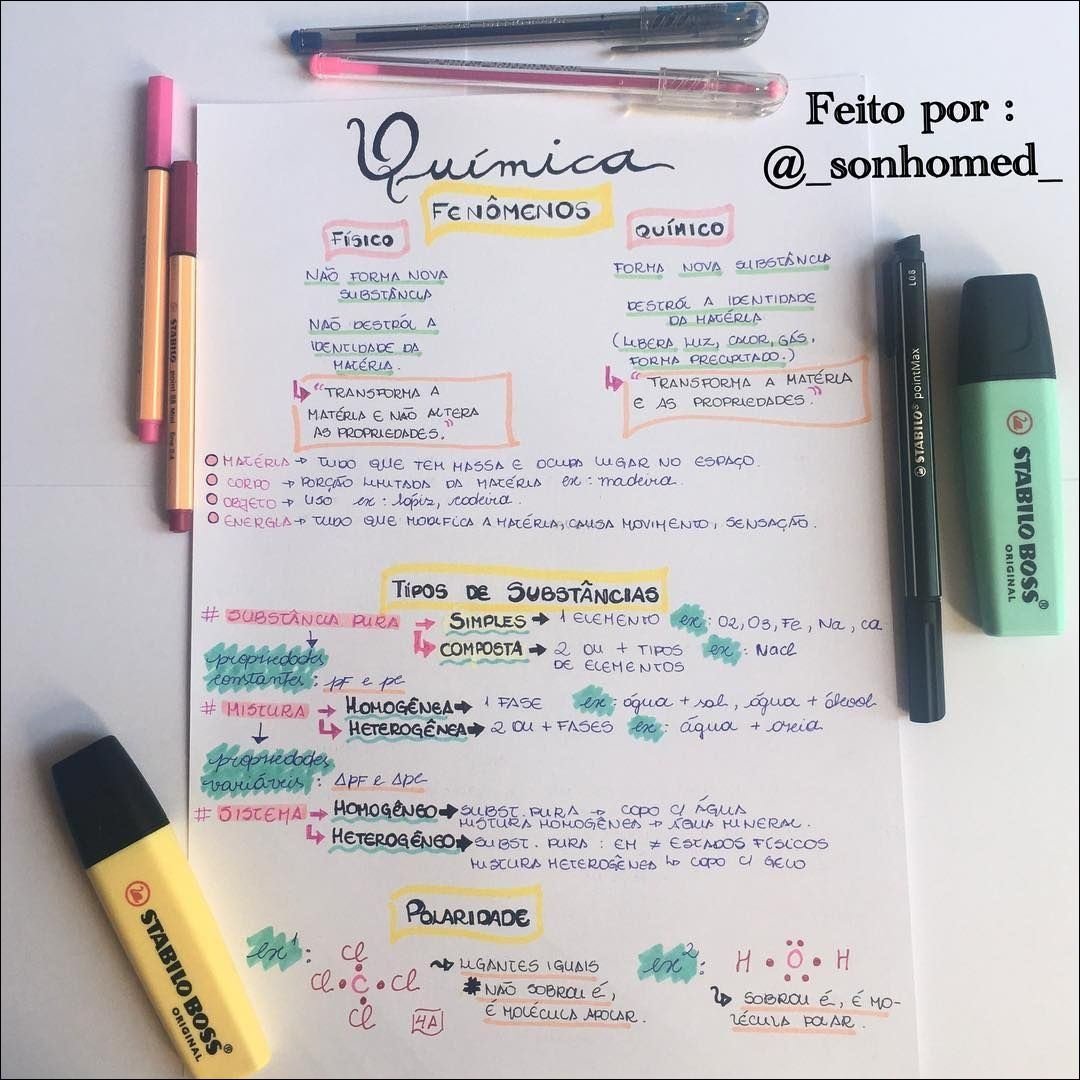 Feito por :
@_sonhomed_
Química
FENÔMENOS
FÍSICO
NÃO FORMA NOVA
SUBSTÂNCIA
NÃO DESTRÓI A
IDENTIDADE DA
MATÉRIA.
↳ "TRANSFORMA A
MATÉRIA E NÃO ALTERA
AS PROPRIEDADES."
QUÍMICO
FORMA NOVA SUBSTÂNCIA
DESTRÓI A IDENTIDADE
DA MATÉRIA
(LIBERA LUZ, CALOR, GÁS,
FORMA PRECIPITADO.)
↳ "TRANSFORMA A MATÉRIA
E AS PROPRIEDADES."
MATÉRIA → TUDO QUE TEM MASSA E OCUPA LUGAR NO ESPAÇO.
CORPO → PORÇÃO LIMITADA DA MATÉRIA ex: madeira.
OBJETO → USO ex: lápis, cadeira.
ENERGIA → TUDO QUE MODIFICA A MATÉRIA, CAUSA MOVIMENTO, SENSAÇÃO.
TIPOS DE SUBSTÂNCIAS
# SUBSTÂNCIA PURA → SIMPLES → 1 ELEMENTO ex: O2, O3, Fe, Na, Ca
↳ COMPOSTA → 2 OU + TIPOS ex: Nacl
DE ELEMENTOS
propriedades
constantes: PF e PE
# MISTURA → HOMOGÊNEA → 1 FASE ex: água + sal, água + álcool
↳ HETEROGÊNEA → 2 OU + FASES ex: água + areia
propriedades
variáveis: ΔPF e ΔPE
# SISTEMA → HOMOGÊNEO → SUBST. PURA → COPO C/ ÁGUA
MISTURA HOMOGÊNEA → ÁGUA MINERAL.
↳ HETEROGÊNEO → SUBST. PURA : EM ≠ ESTADOS FÍSICOS
MISTURA HETEROGÊNEA ↳ COPO C/ GELO
POLARIDADE
ex1:
Cl
Cl • C • Cl
Cl
4A
LIGANTES IGUAIS
* NÃO SOBROU É,
É MOLÉCULA APOLAR.
ex2:
H • O • H
↳ SOBROU É, É MO-
LÉCULA POLAR.
STABILO point 88 Mini
STABILO pointMax
L 0.8
STABILO BOSS®
ORIGINAL
STABILO BOSS®
ORIGINAL